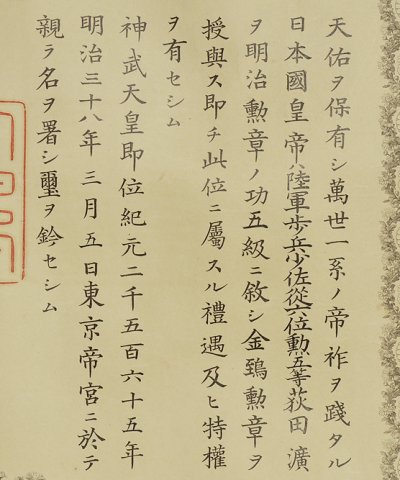 天佑ヲ保有シ萬世一系ノ帝祚ヲ踐タル
日本國皇帝ハ陸軍歩兵少佐從六位勲五等荻田濱
ヲ明治勲章ノ功五級ニ敘シ金鵄勲章ヲ
授與ス即チ此位ニ屬スル禮遇及ヒ特權
ヲ有セシム
神武天皇即位紀元二千五百六十五年
明治三十八年三月五日東京帝宮ニ於テ
親ラ名ヲ署シ璽ヲ鈐セシム